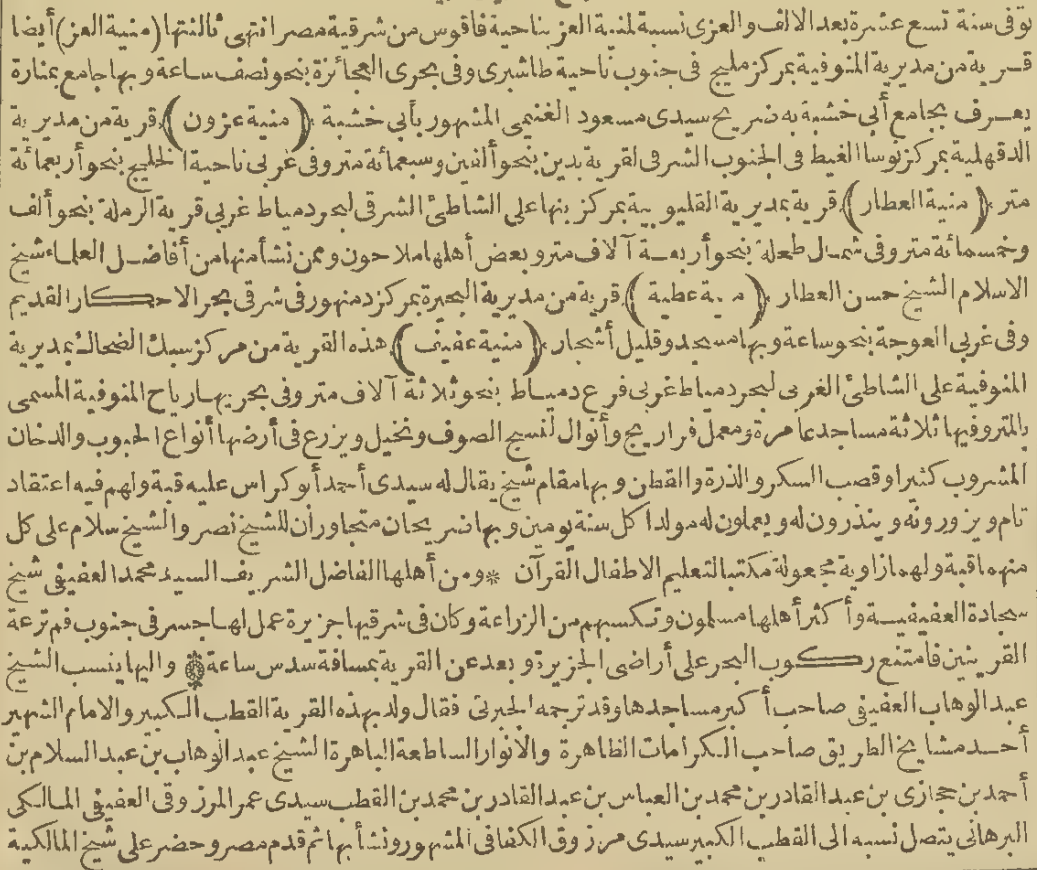 توفى سنة تسع عشرة بعد الالف والعزى نسبة لمنية العز بناحية فاقوس من شرقية مصر انتهى ثالثتها (منية العز) أيضا
قرية من مديرية المنوفية بمركز مليج فى جنوب ناحية طاشبرى وفى بحرى العجائزة بنحو نصف ساعة وبها جامع بمنارة
يعرف بجامع أبى خشبة به ضريح سيدى مسعود الغنيمى المشهور بأبى خشبة (منية عزون) قرية من مديرية
الدقهلية بمركز نوسا الغيط فى الجنوب الشرقى لقرية بدين بنحو ألفين وسبعمائة متر وفى غربى ناحية الخليج بنحو أربعمائة
متر (منية العطار) قرية بمديرية القليوبية بمركز بنها على الشاطئ الشرقى لبحر دمياط غربى قرية الرملة بنحو ألف
وخمسمائة متر وفى شمال طحلة بنحو أربعة آلاف متر وبعض أهلها ملاحون وممن نشأ منها من أفاضل العلماء شيخ
الاسلام الشيخ حسن العطار (منية عطية) قرية من مديرية البحيرة بمركز دمنهور فى شرقى بحر الاحكار القديم
وفى غربى العوجة بنحو ساعة وبها مسجد وقليل أشجار (منية عفيف) هذه القرية من مركز سبك الضحاك بمديرية
المنوفية على الشاطئ الغربى لبحر دمياط غربى فرع دمياط بنحو ثلاثة آلاف متر وفى بحريها رياح المنوفية المسمى
بالمتر وفيها ثلاثة مساجد عامرة ومعمل فراريج وأنوال لنسج الصوف ونخيل ويزرع فى أرضها أنواع الحبوب والدخان
المشروب كثيرا وقصب السكر والذرة والقطن وبها مقام شيخ يقال له سيدى أحمد أبو كراس عليه قبة ولهم فيه اعتقاد
تام ويزورونه وينذرون له ويعملون له مولدا كل سنة يومين وبها ضريحان متجاوران للشيخ نصر والشيخ سلام على كل
منهما قبة ولهما زاوية مجعولة مكتبا لتعليم الاطفال القرآن * ومن أهلها الفاضل الشريف السيد محمد العفيفى شيخ
سجادة العفيفية وأكثر أهلها مسلمون وتكسبهم من الزراعة وكان فى شرقيها جزيرة عمل لها جسر فى جنوب فم ترعة
القرينين فامتنع ركوب البحر على أراضى الجزيرة وبعد عن القرية بمسافة سدس ساعة * واليها ينسب الشيخ
عبد الوهاب العفيفى صاحب أكبر مساجدها وقد ترجمه الجبرتى فقال ولد بهذه القرية القطب الكبير والامام الشهير
أحد مشايخ الطريق صاحب الكرامات الظاهرة والانوار الساطعة الباهرة الشيخ عبد الوهاب بن عبد السلام بن
أحمد بن حجازى بن عبد القادر بن محمد بن العباس بن عبد القادر بن محمد بن القطب سيدى عمر المرزوقى العفيفى المالكى
البرهانى يتصل نسبه الى القطب الكبير سيدى مرزوق الكفافى المشهور ونشأ بها ثم قدم مصر وحضر على شيخ المالكية